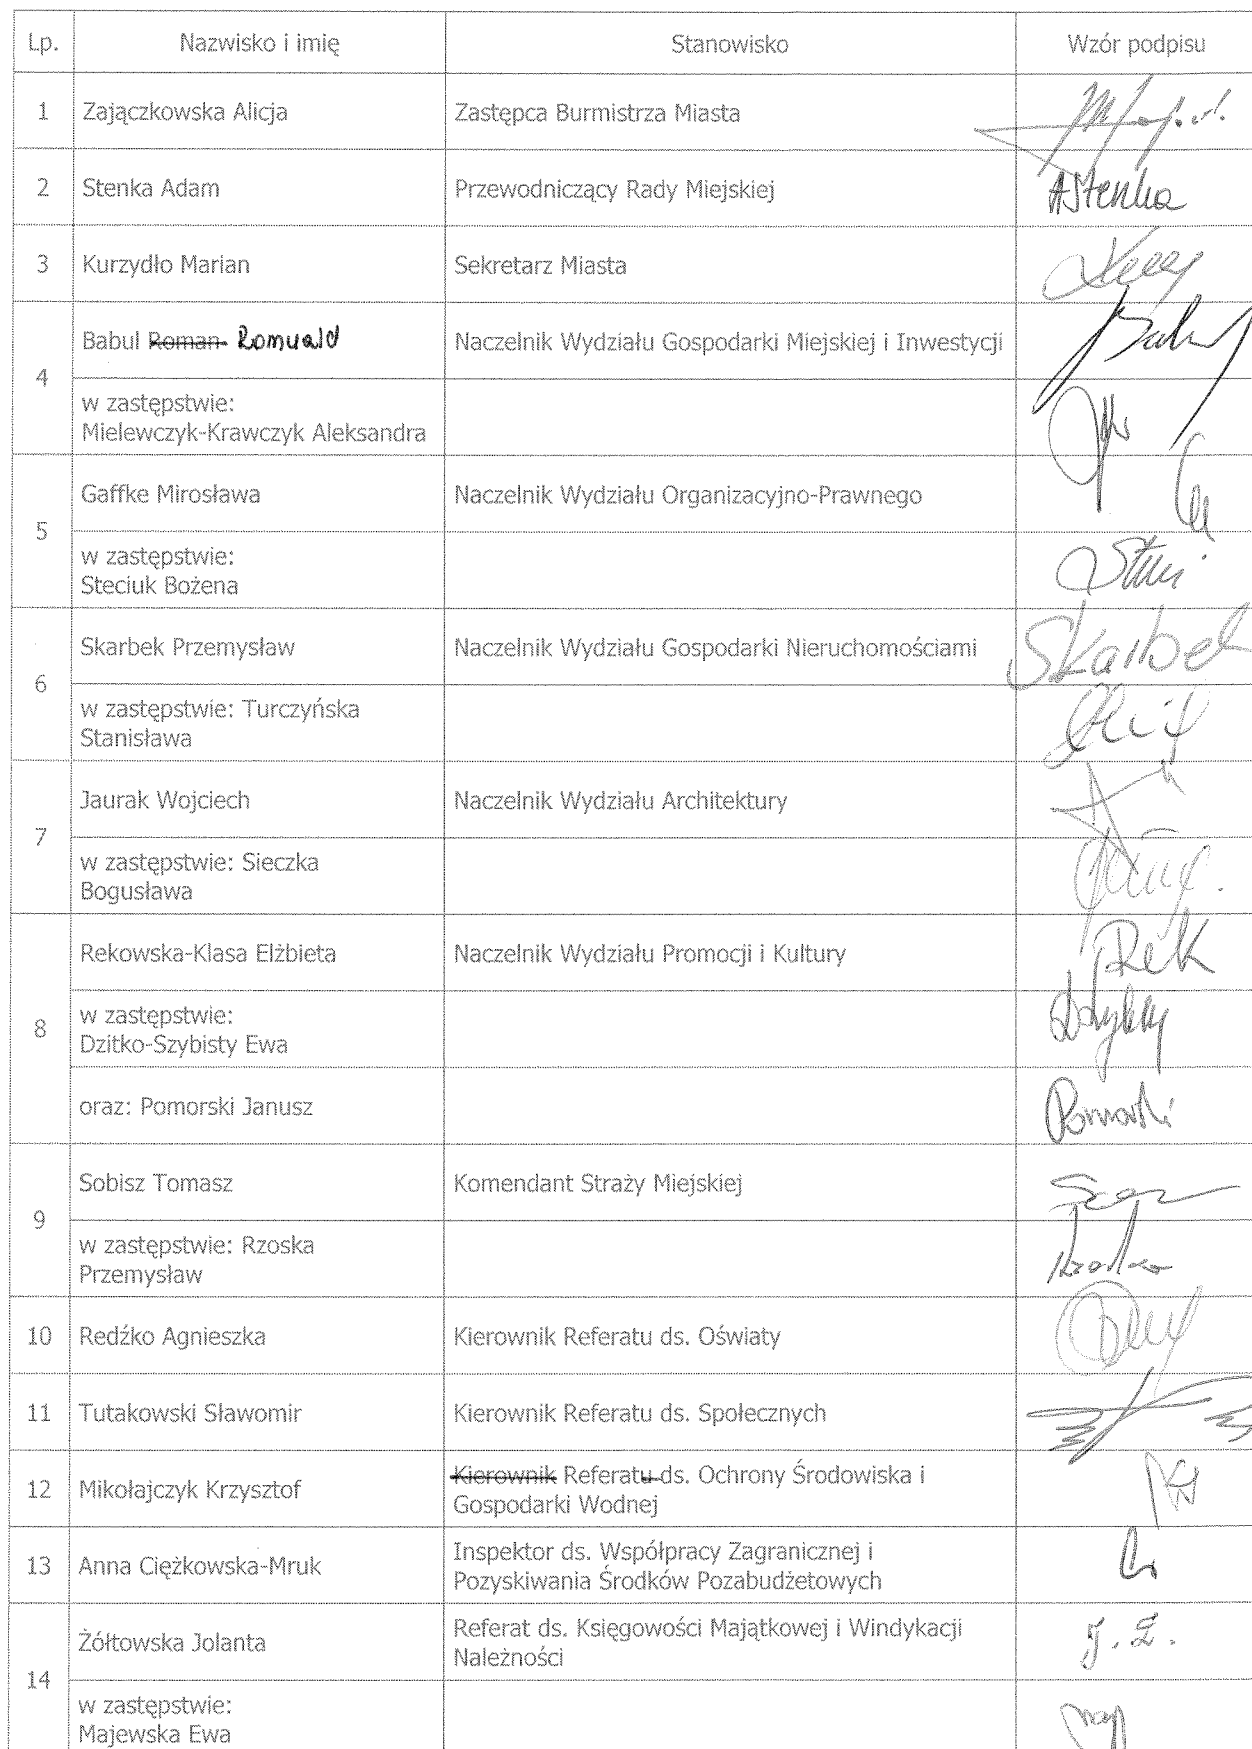 Lp. Nazwisko i imię Stanowisko Wzór podpisu
1 Zajączkowska Alicja Zastępca Burmistrza Miasta
2 Stenka Adam Przewodniczący Rady Miejskiej AStenka
3 Kurzydło Marian Sekretarz Miasta
4 Babul Roman Romuald Naczelnik Wydziału Gospodarki Miejskiej i Inwestycji
w zastępstwie:
Mielewczyk-Krawczyk Aleksandra
5 Gaffke Mirosława Naczelnik Wydziału Organizacyjno-Prawnego
w zastępstwie:
Steciuk Bożena
6 Skarbek Przemysław Naczelnik Wydziału Gospodarki Nieruchomościami Skarbek
w zastępstwie: Turczyńska
Stanisława
7 Jaurak Wojciech Naczelnik Wydziału Architektury
w zastępstwie: Sieczka
Bogusława
8 Rekowska-Klasa Elżbieta Naczelnik Wydziału Promocji i Kultury Rek
w zastępstwie:
Dzitko-Szybisty Ewa
oraz: Pomorski Janusz Pomorski
9 Sobisz Tomasz Komendant Straży Miejskiej
w zastępstwie: Rzoska
Przemysław
10 Redźko Agnieszka Kierownik Referatu ds. Oświaty
11 Tutakowski Sławomir Kierownik Referatu ds. Społecznych
12 Mikołajczyk Krzysztof Kierownik Referatu ds. Ochrony Środowiska i
Gospodarki Wodnej
13 Anna Ciężkowska-Mruk Inspektor ds. Współpracy Zagranicznej i
Pozyskiwania Środków Pozabudżetowych
14 Żółtowska Jolanta Referat ds. Księgowości Majątkowej i Windykacji
Należności J. Ż.
w zastępstwie:
Majewska Ewa